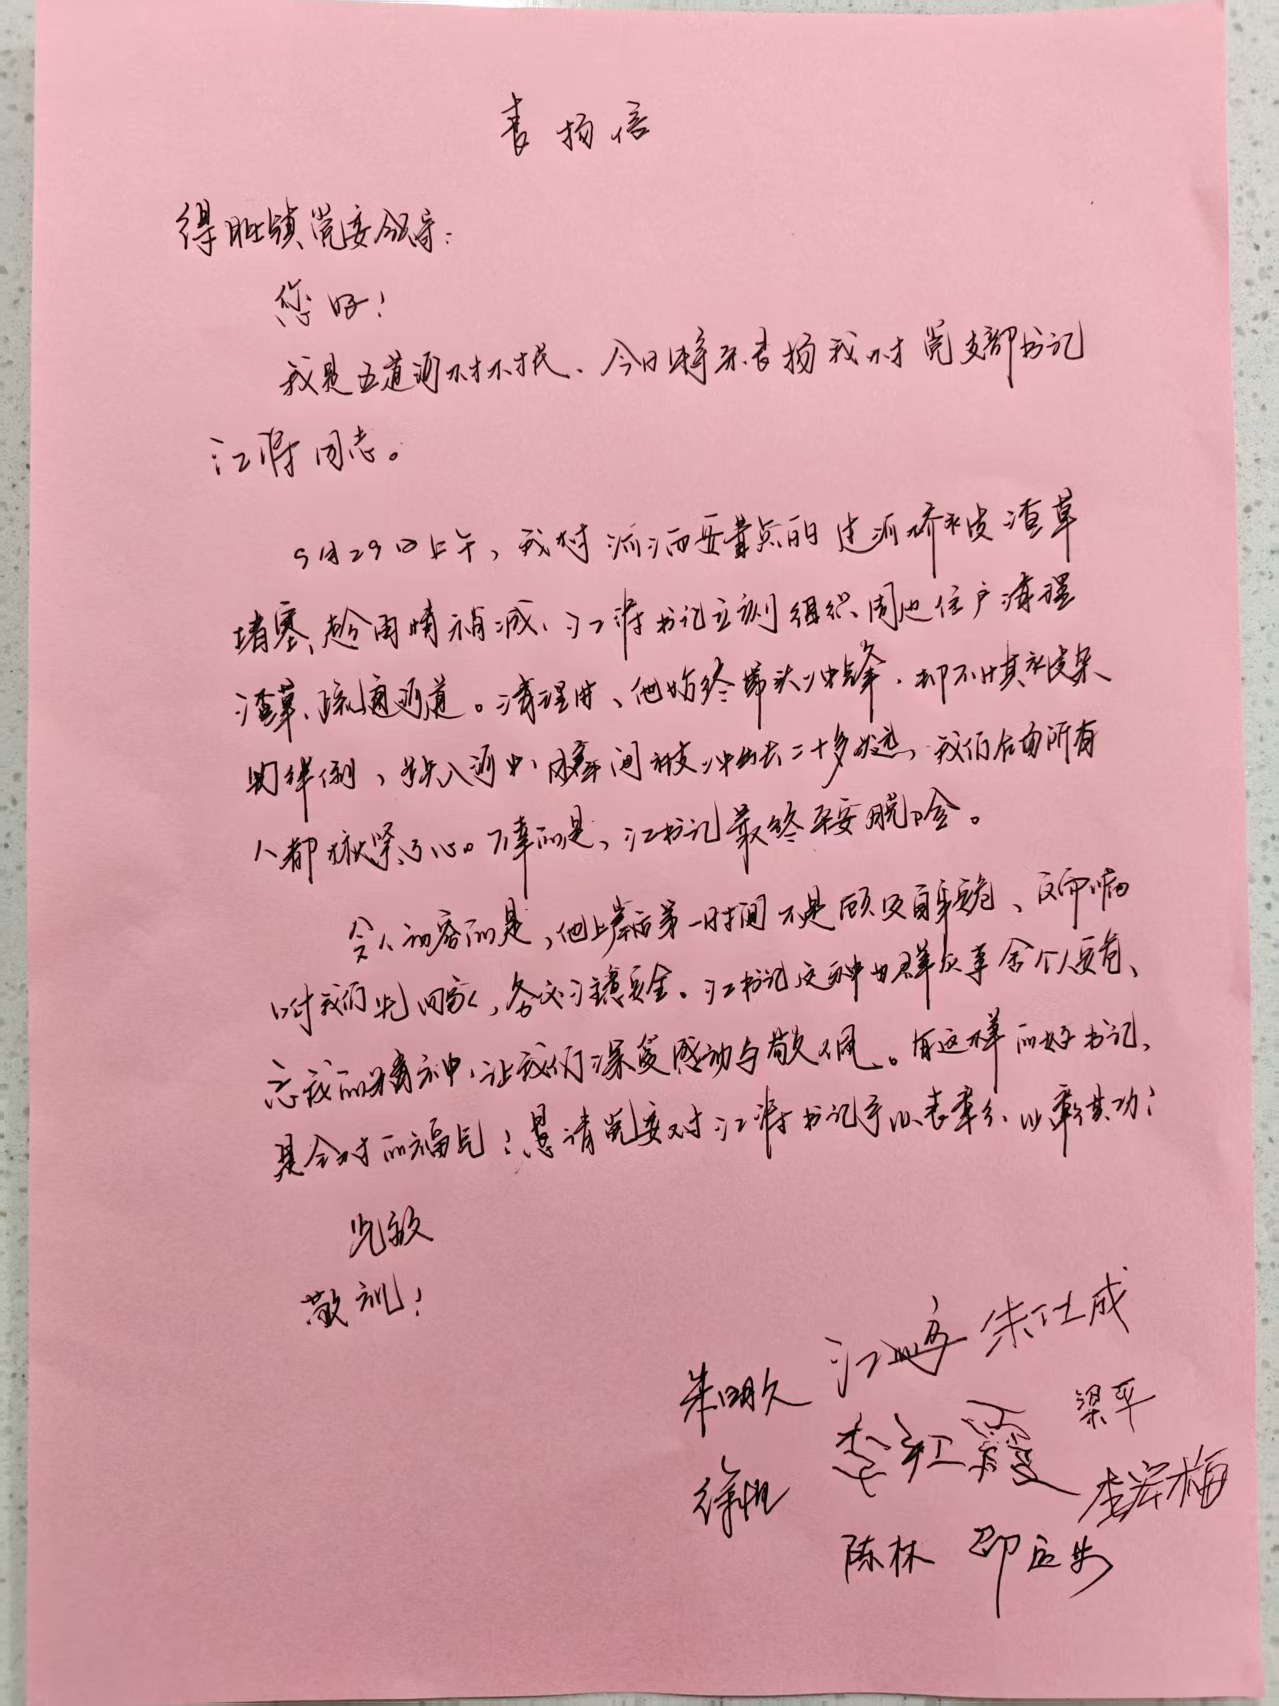 表扬信
得胜镇党委领导:
您好!
我是五道河村村民、今日特来表扬我村党支部书记
江涛同志。
9月29日上午,我村河西安置点的过河桥被渣草
堵塞、趁雨情稍减、江涛书记立刻组织周边住户清理
渣草、疏通河道。清理中、他始终带头冲锋,却不慎被
绊倒,跌入河中,瞬间被冲出去二十多米远,我们后面所有
人都揪紧了心。万幸的是,江书记最终平安脱险。
令人动容的是,他上岸后第一时间不是顾及自身安危、反而嘱
咐我们先回家,务必注意安全。江书记这种为群众事舍个人安危、
忘我的精神,让我们深受感动与敬佩。有这样的好书记、
是全村的福气!恳请党委对江涛书记予以表彰、以彰其功!
此致
敬礼!
江 朱仕成
朱明久
李红霞 梁平
徐 李宏梅
陈林 邵